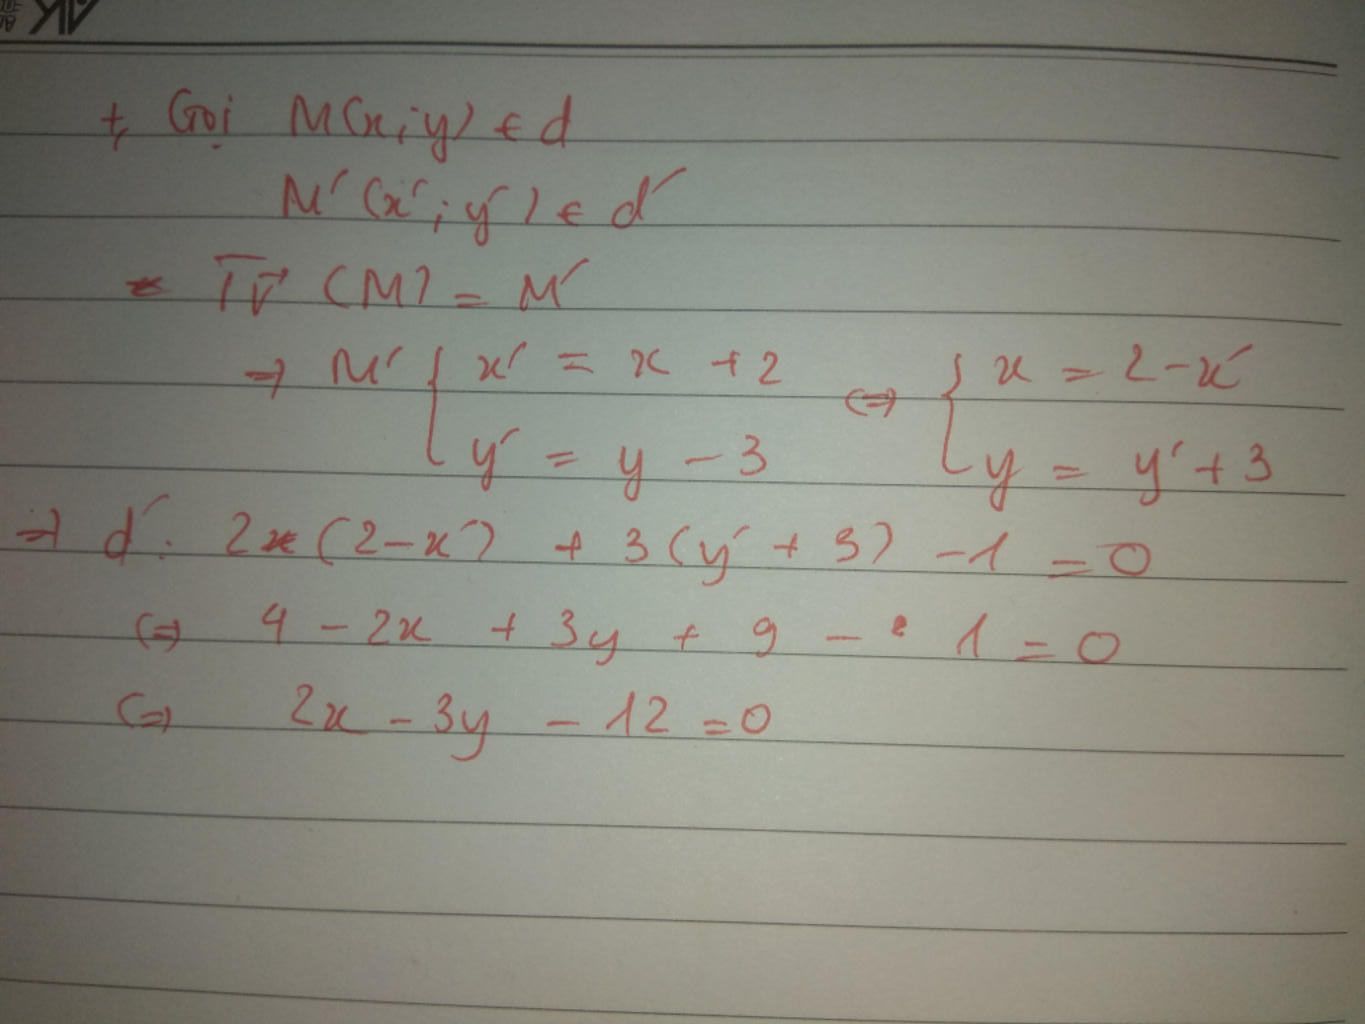 +, Gọi M(x;y) ∈ d
M'(x';y') ∈ d'
T_v⃗ (M) = M'
⇒ M' { x' = x + 2 ⇔ { x = 2 - x'
y' = y - 3 y = y' + 3
⇒ d': 2(2 - x') + 3(y' + 3) - 1 = 0
⇔ 4 - 2x + 3y + 9 - 1 = 0
⇔ 2x - 3y - 12 = 0